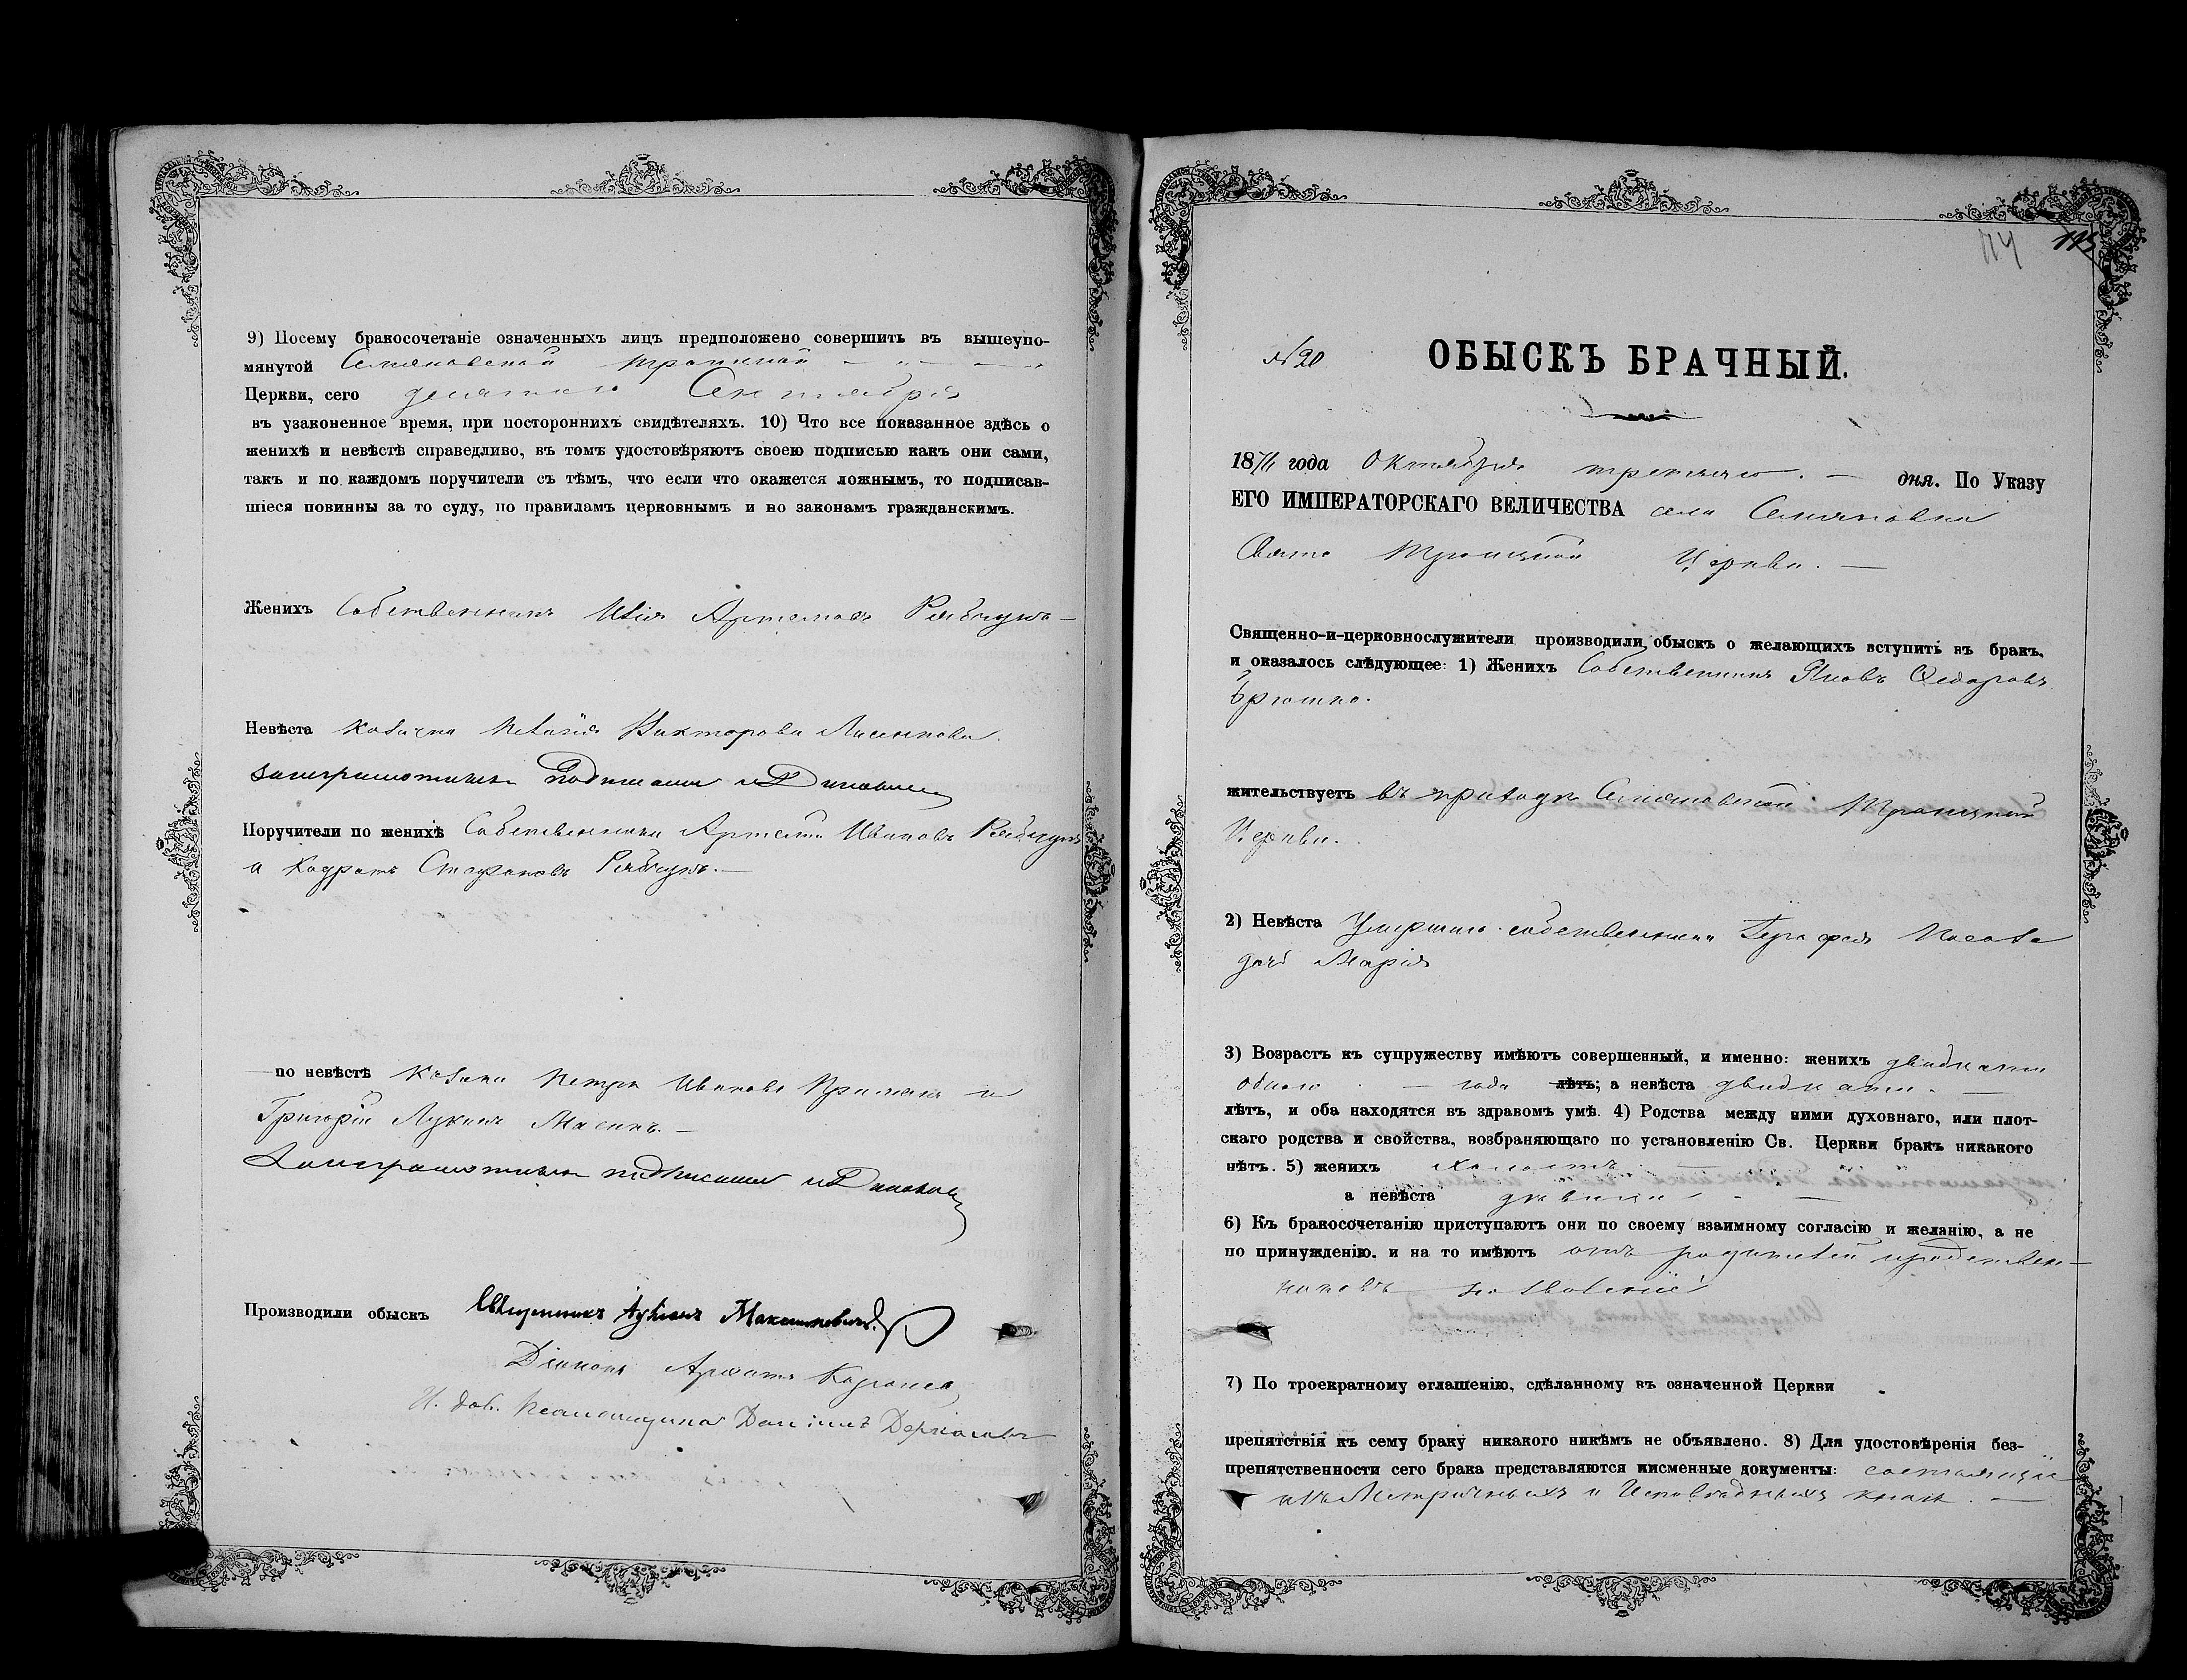 9) Посему бракосочетаніе означенныхъ лицъ предположено совершить въ вышеупо-
мянутой Семяновской Троицкой
Церкви, сего девятаго Сентября
въ узаконенное время, при постороннихъ свидѣтеляхъ. 10) Что все показанное здѣсь о
женихѣ и невѣстѣ справедливо, въ томъ удостовѣряютъ своею подписью какъ они сами,
такъ и по каждомъ поручители съ тѣмъ, что если что окажется ложнымъ, то подписав-
шіеся повинны за то суду, по правиламъ церковнымъ и по законамъ гражданскимъ.
Женихъ Собственникъ Илія Артемовъ Рябчукъ
Невѣста Козачка Викторова
Поручители по женихѣ Собственники Артемъ Ивановъ Рябчукъ
и Кодратъ Стефановъ Рябчукъ.
по невѣстѣ Козаки Петръ Ивановъ и
Григорій Лукинъ
Производили обыскъ Священникъ Максимовичъ.
Діаконъ
И. дол. Псаломщика Даніилъ
114 115
№ 20
ОБЫСКЪ БРАЧНЫЙ.
1871 года Октября третьяго. дня. По Указу
ЕГО ИМПЕРАТОРСКАГО ВЕЛИЧЕСТВА села Семяновки
Свято Троицкой Церкви.
Священно-и-церковнослужители производили обыскъ о желающихъ вступить въ бракъ,
и оказалось слѣдующее: 1) Женихъ Собственникъ Яковъ Федоровъ
жительствуетъ въ приходѣ Семяновской Троицкой
Церкви.
2) Невѣста Умершаго собственника
дочь Марія
3) Возрастъ къ супружеству имѣютъ совершенный, и именно: женихъ двадцати
одного года лѣтъ; а невѣста двадцати
лѣтъ, и оба находятся въ здравомъ умѣ. 4) Родства между ними духовнаго, или плот-
скаго родства и свойства, возбраняющаго по установленію Св. Церкви бракъ никакого
нѣтъ. 5) женихъ холостъ
а невѣста девица
6) Къ бракосочетанію приступаютъ они по своему взаимному согласію и желанію, а не
по принужденію, и на то имѣютъ отъ родителей и родствен-
никовъ позволеніе
7) По троекратному оглашенію, сдѣланному въ означенной Церкви
препятствія къ сему браку никакого никѣмъ не объявлено. 8) Для удостовѣренія без-
препятственности сего брака представляются письменные документы: состоящіе
изъ Метричныхъ и Исповѣдныхъ книгъ.